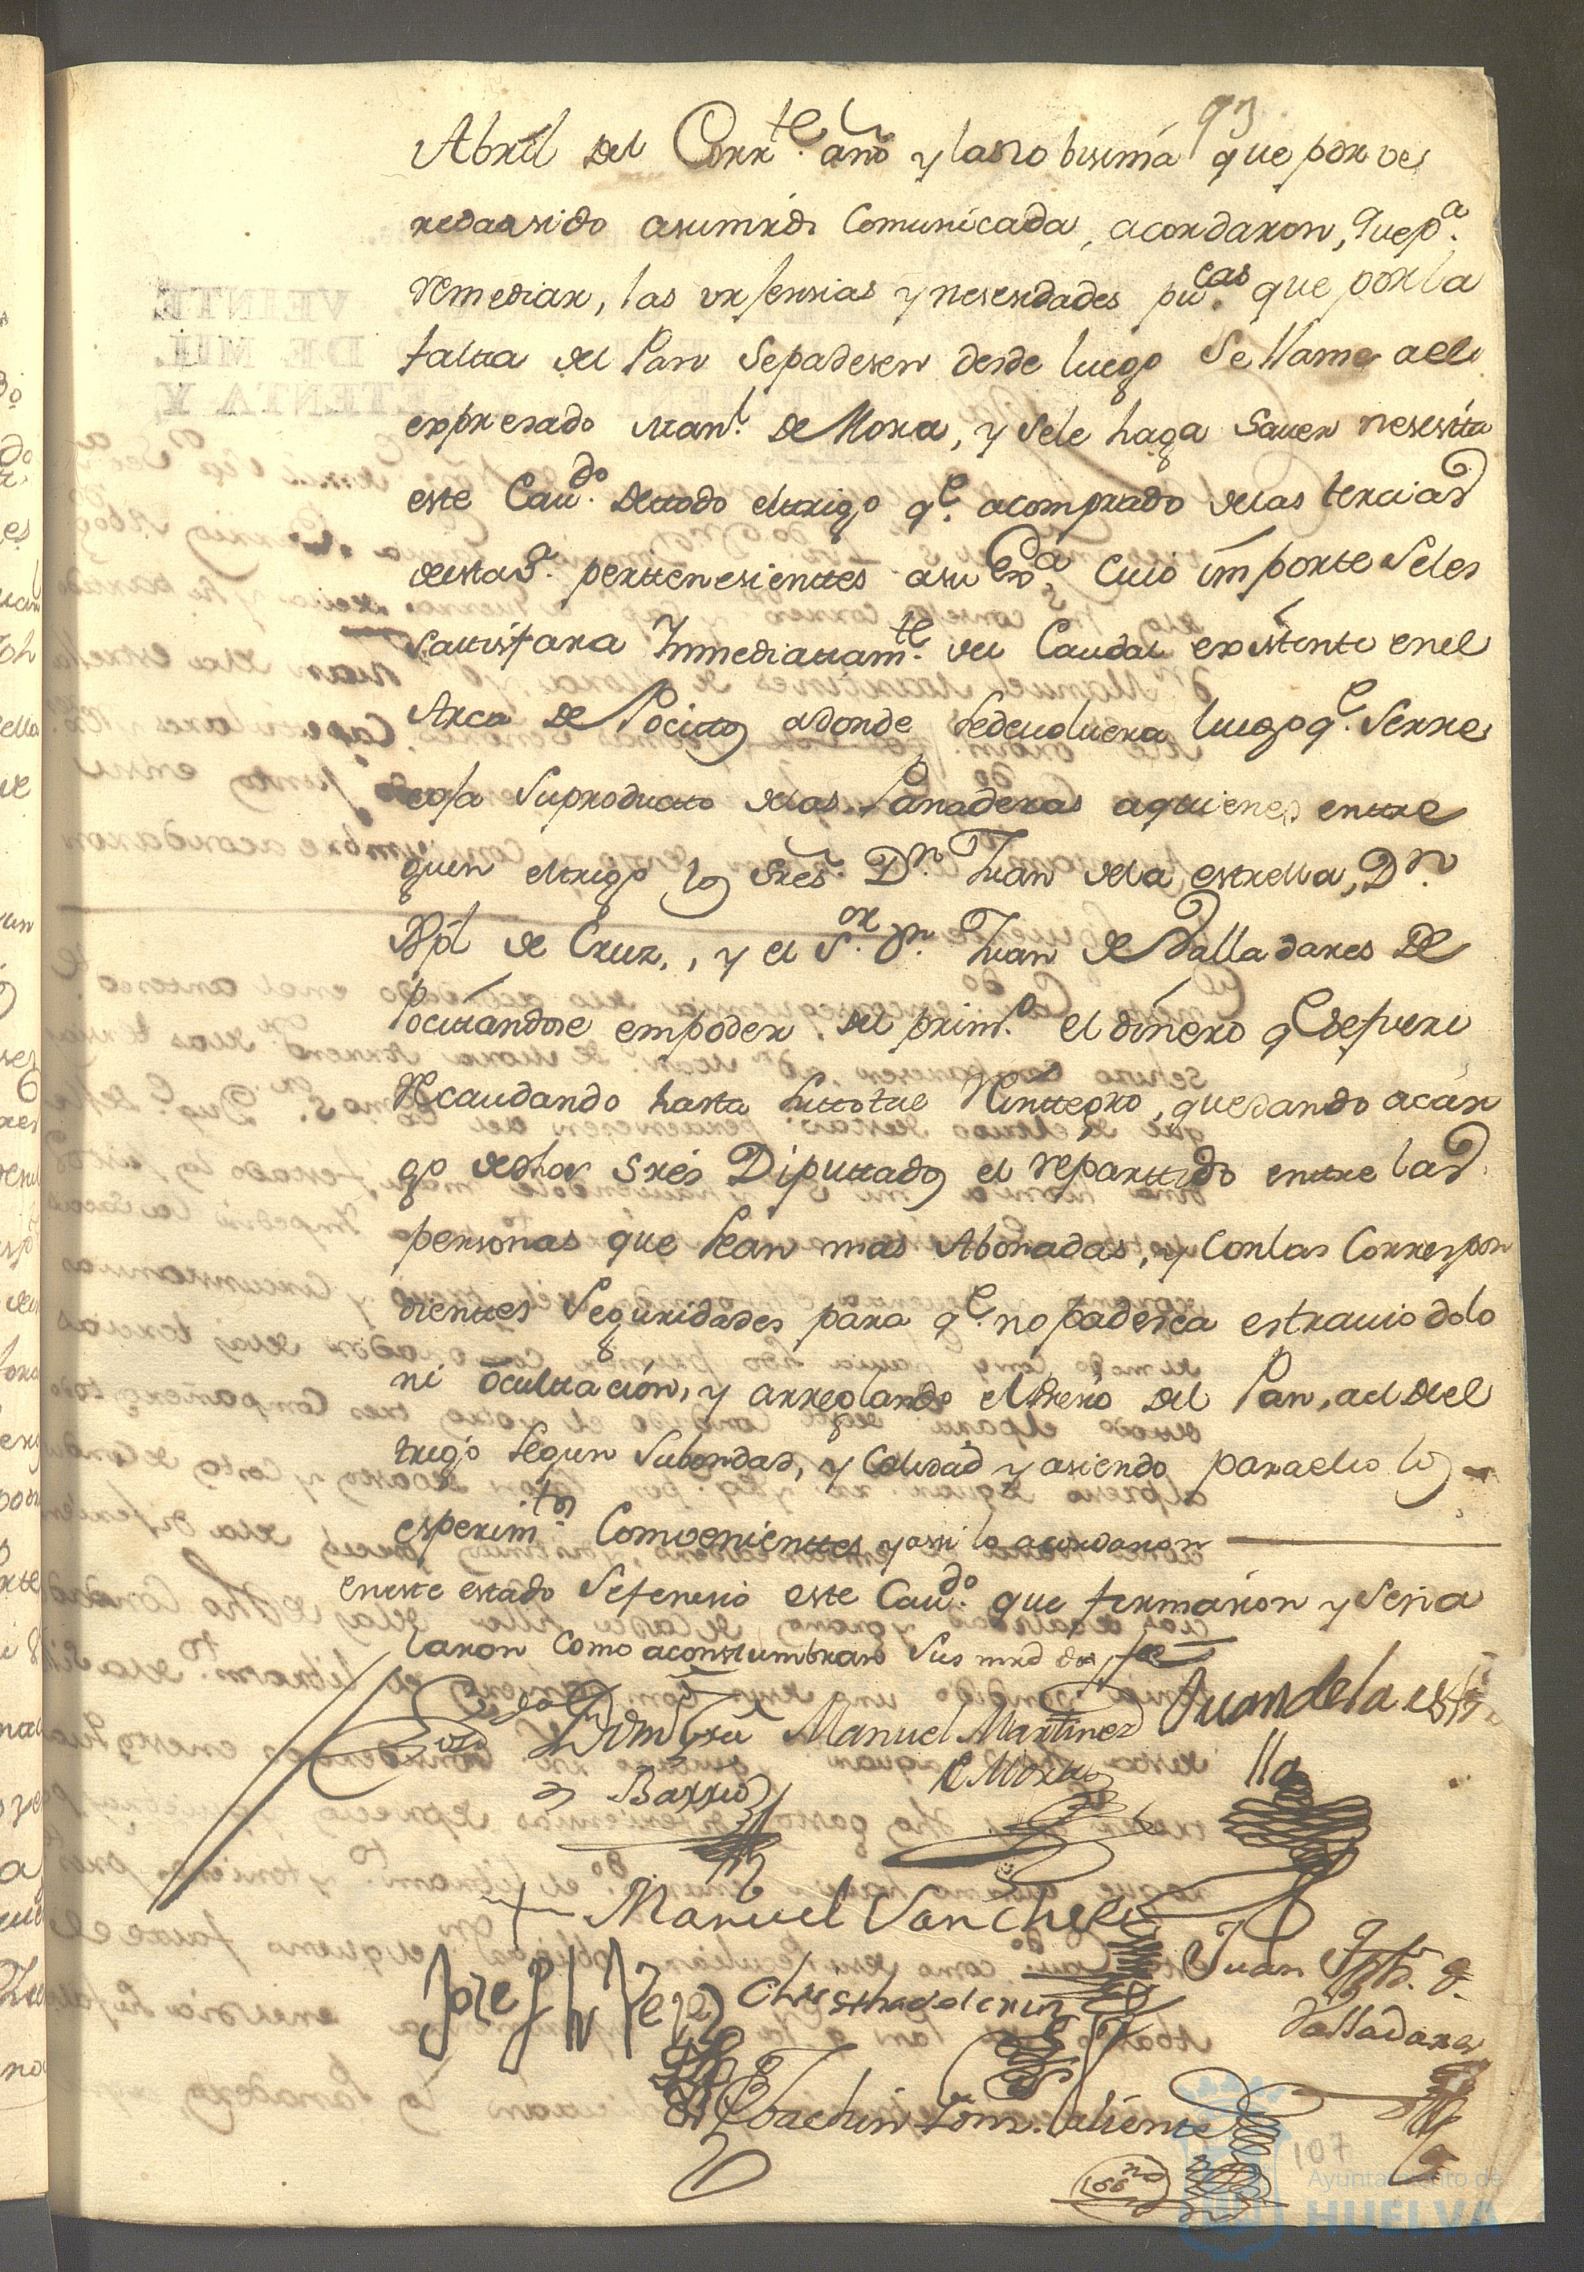 93
Abril del Corrte. año y la novisima que por ve
reda a sido a sumrds Comunicada, acordaron, que pa.
remediar, las urjensias y nesesidades pucas. que por la
falta del Pan se padesen desde luego se llame a el
expresado Manl. de Mora, y sele haga saver nesesita
este Caudo. de todo el trigo qe. a comprado de las tercias
desta Va. perttenesienttes a su Exa. Cuio importe seles
sattisfara Inmediattamte. del Caudal existente en el
Arca de Pocittos adonde se devolvera luego qe. se rre
coja su producto de las Panaderas a quienes entre
guen el trigo los Sres. Dn. Juan de la estrella, Dn.
Xptl de Cruz, y el Sor. Dn. Juan de Valladares De
pocitandose em poder del primo. el dinero qe se fuere
Recaudando hasta su total Rinttegro, quedando a car
go de dhos Sres Diputtados el reparttido entre las
personas que sean mas Abonadas, y con las Correspon
dienttes Seguridades para qe. no padesca estravio dolo
ni ocultacion, y arreglando el presio del Pan, al del
trigo segun su bondad, y Calidad y asiendo para ello los
esperimtos Combenienttes y assi lo acordaron
en este estado Sefenesio este Caudo. que firmaron y seña
laron como acostumbran Sus mrds doy fee
Manuel Martinez
de Mora
Juan de la estre
lla
Barrio
Manuel Sanches
Joseph Perez
Christhoval de cruz
Juan Valladares
Joachin Caliente
107
Ayuntamiento de
HUELVA